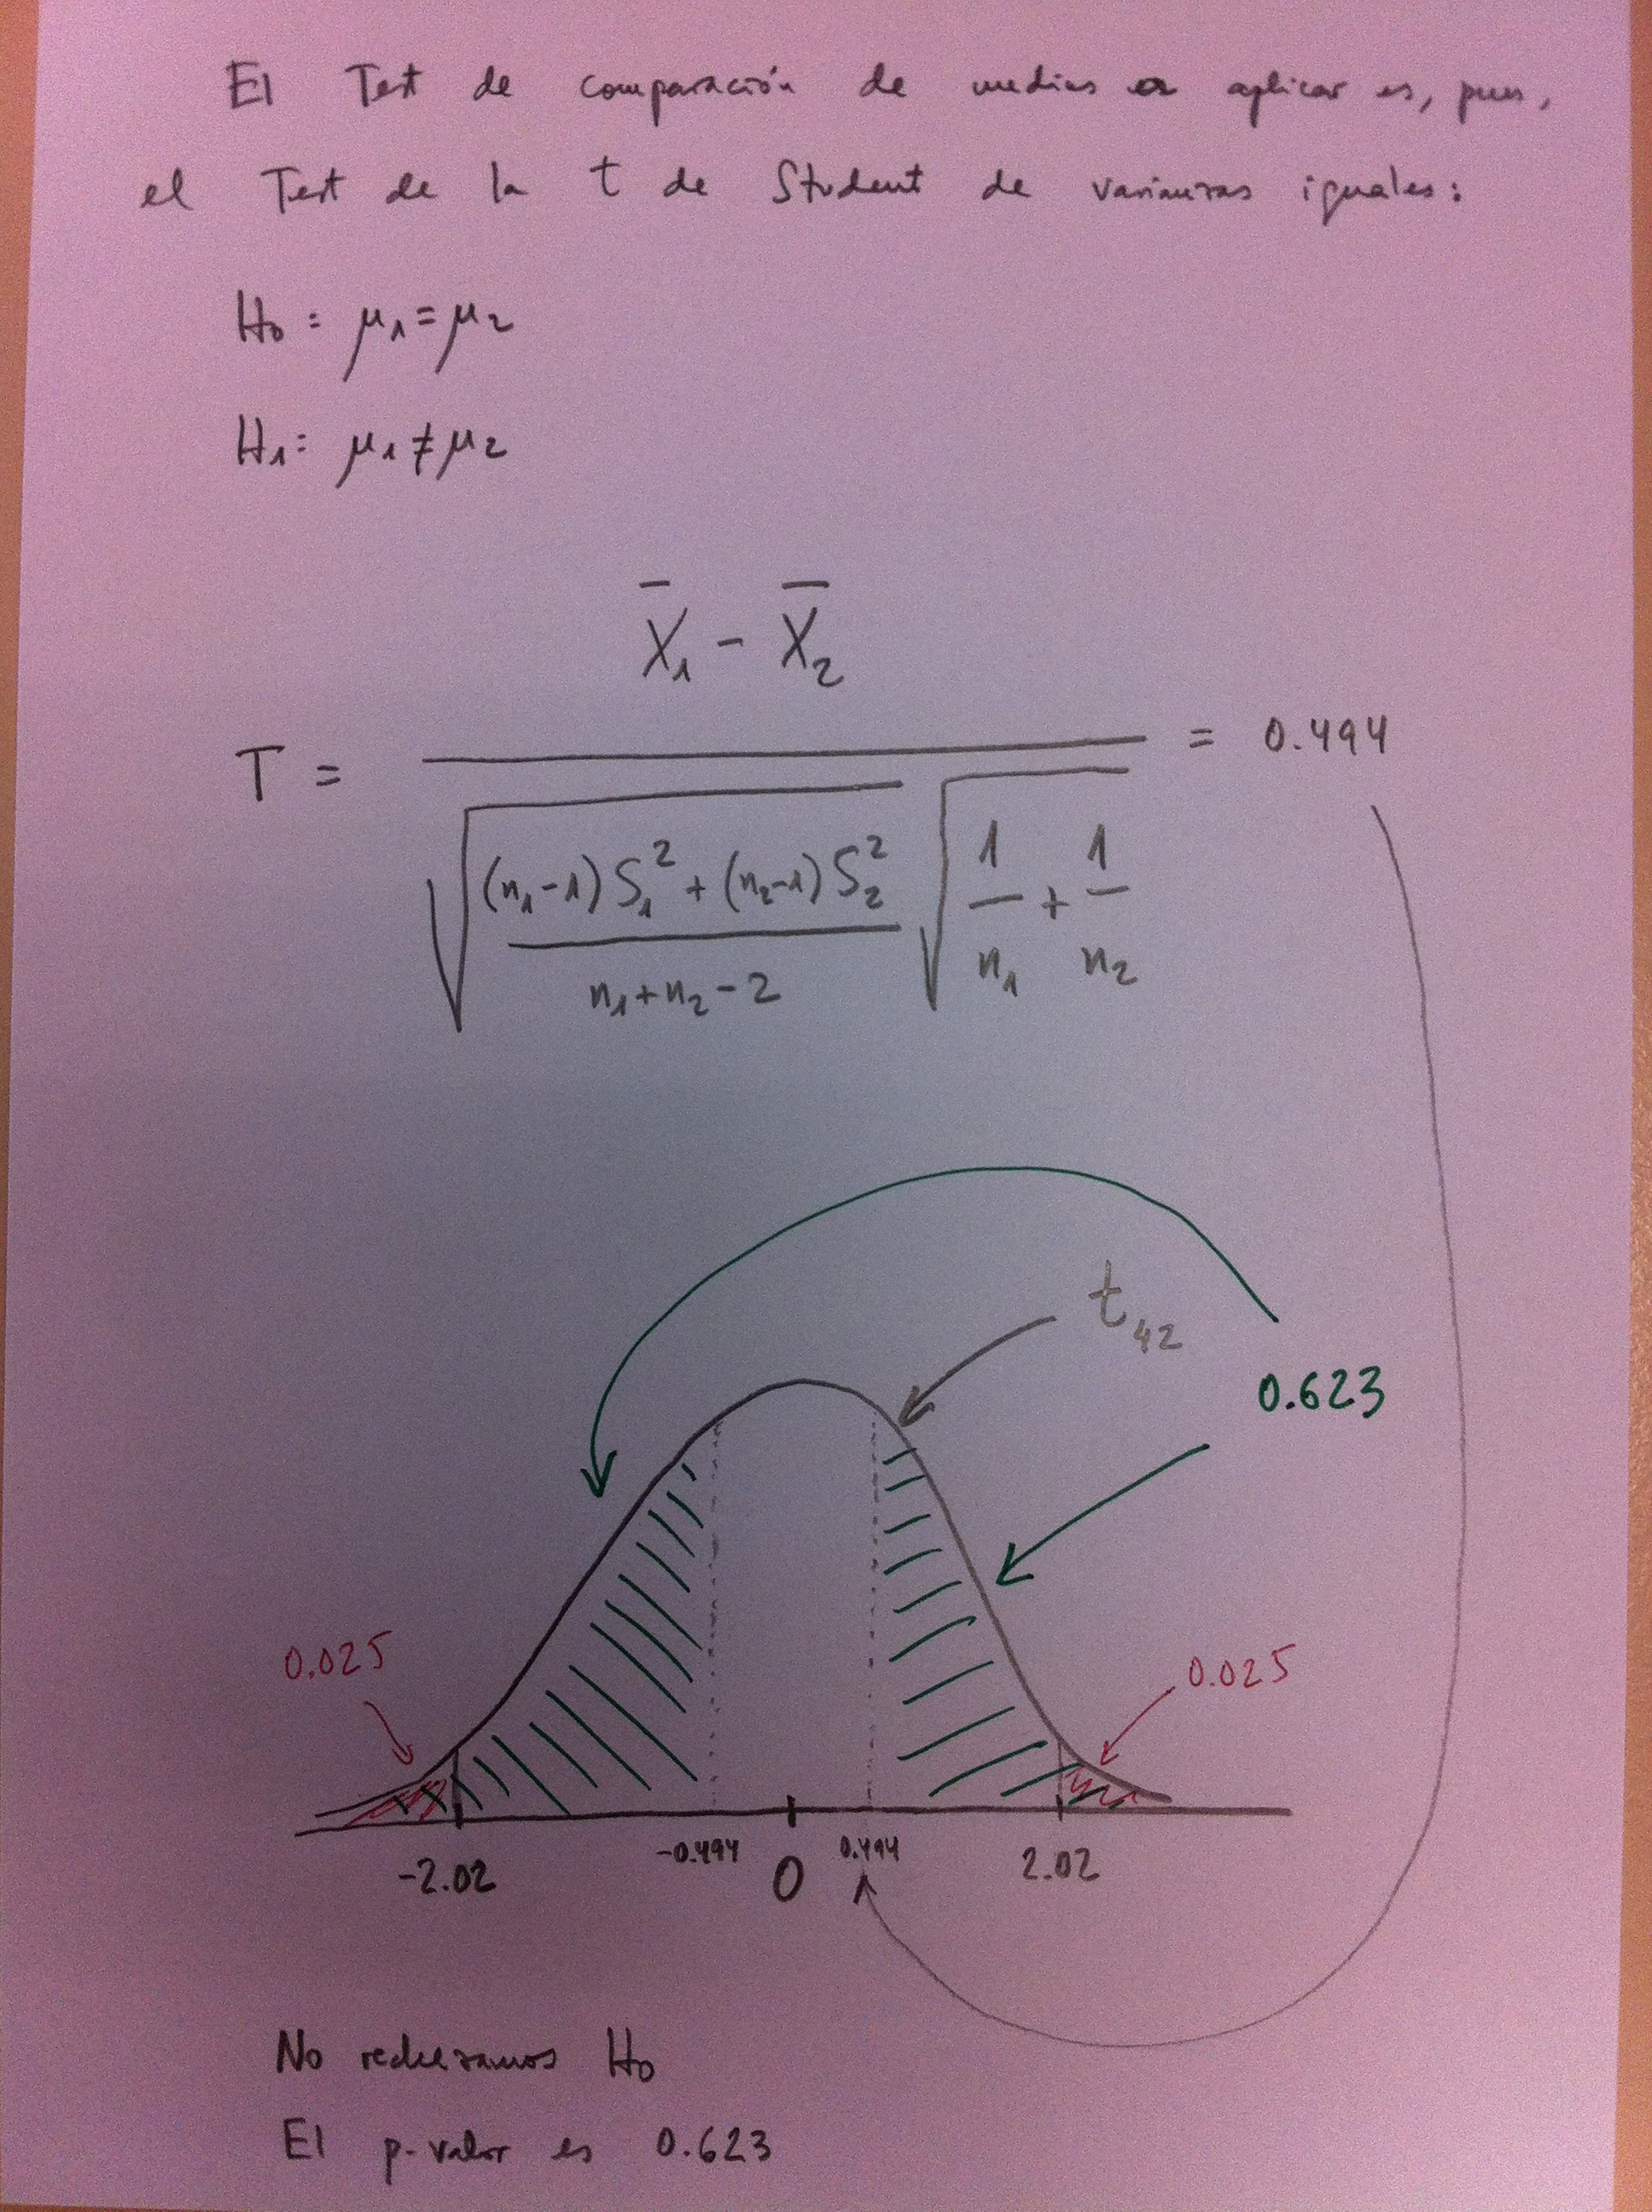 El Test de comparación de medias a aplicar es, pues,
el Test de la t de Student de varianzas iguales:
H₀: μ₁=μ₂
H₁: μ₁≠μ₂
T = (X̄₁ - X̄₂) / (√(((n₁-1)S₁² + (n₂-1)S₂²) / (n₁+n₂-2)) √(1/n₁ + 1/n₂)) = 0.494
t₄₂
0.623
0.025
0.025
-2.02 -0.494 0 0.494 2.02
No rechazamos H₀
El p-valor es 0.623